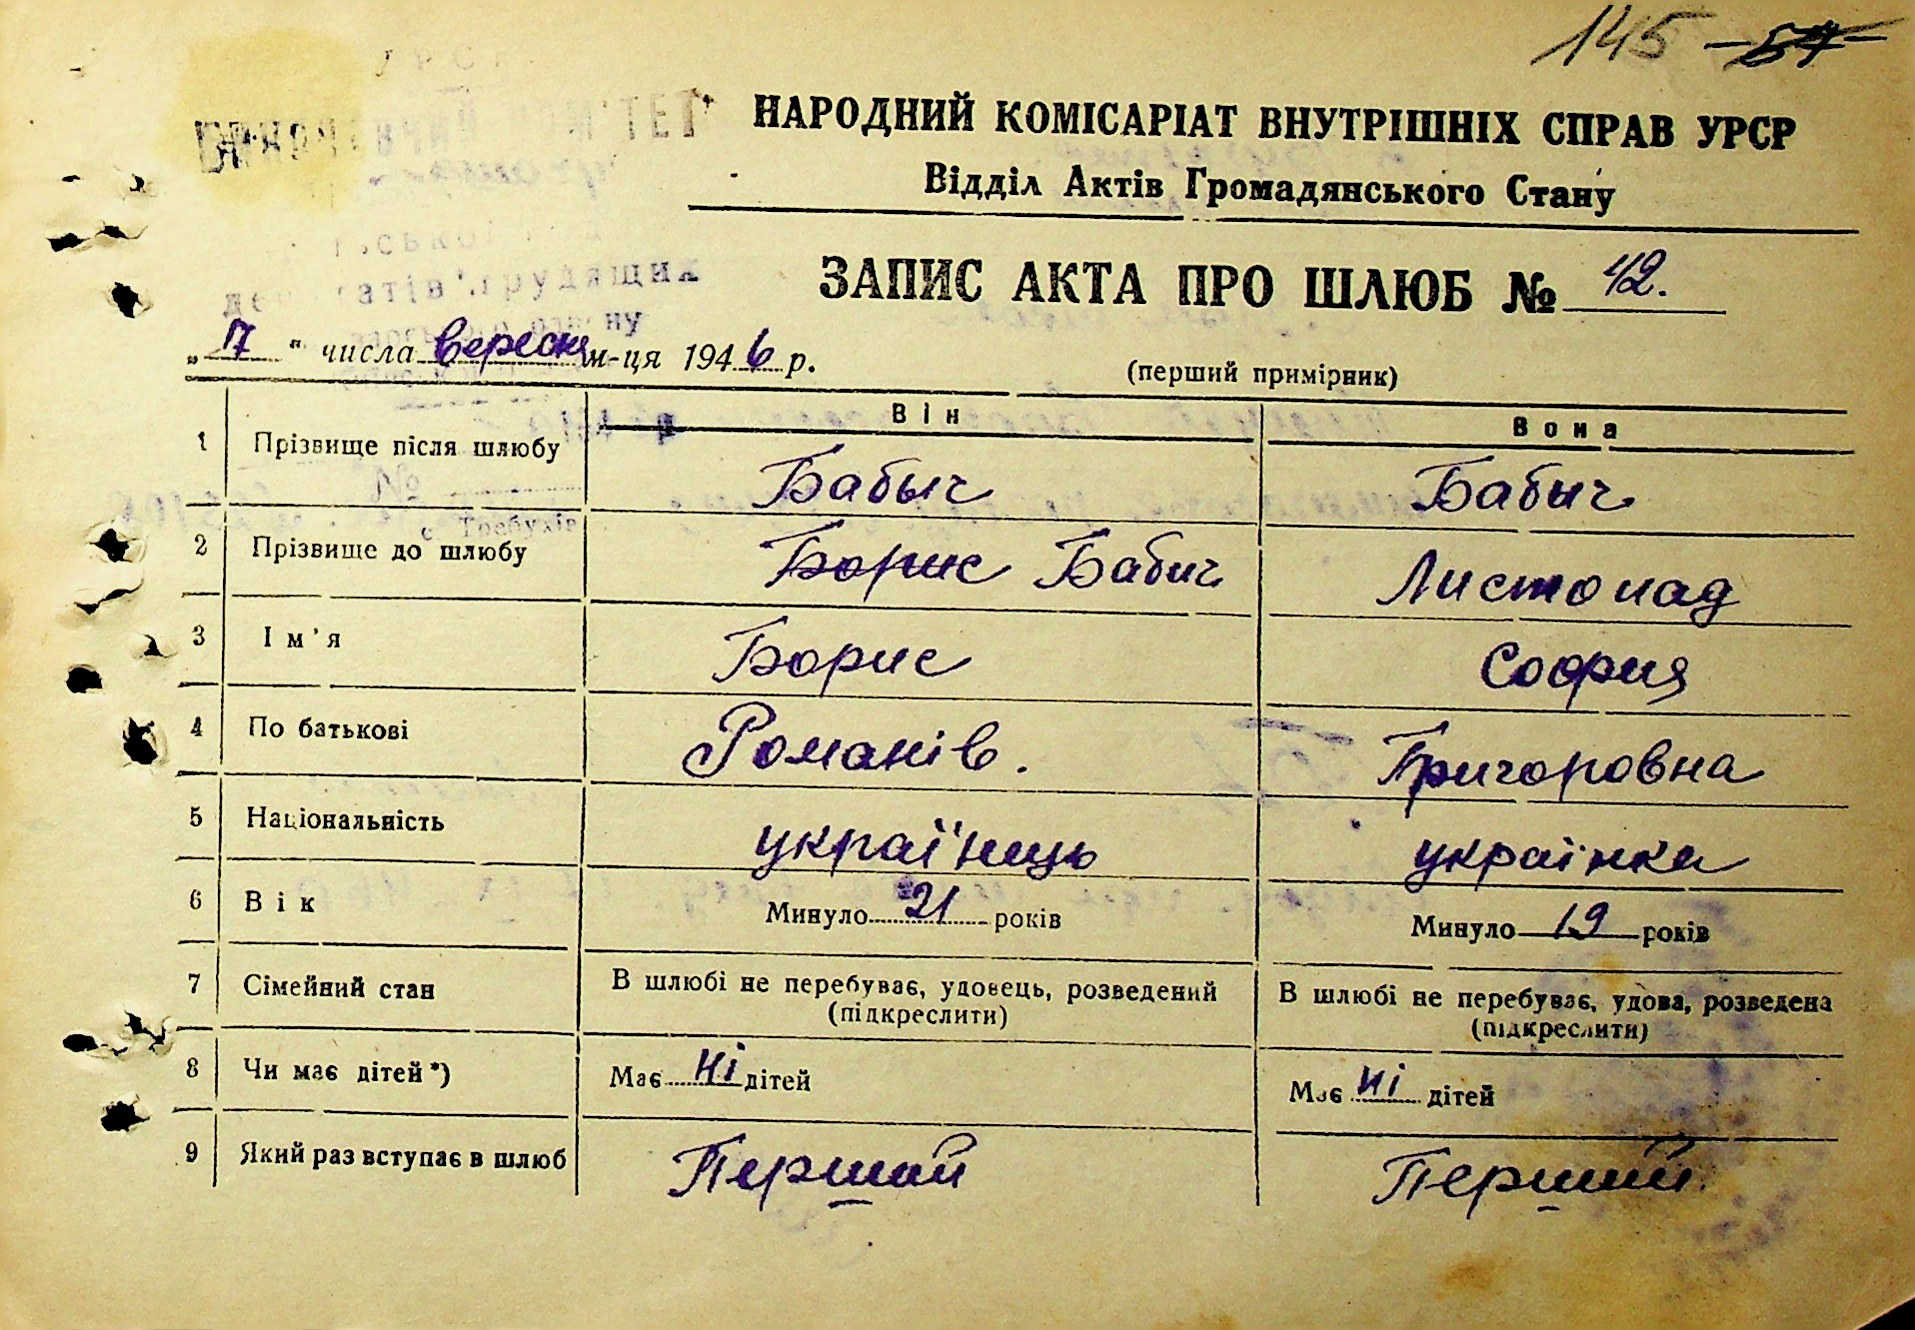 145 -54-
НАРОДНИЙ КОМІСАРІАТ ВНУТРІШНІХ СПРАВ УРСР
Відділ Актів Громадянського Стану
ЗАПИС АКТА ПРО ШЛЮБ № 42.
„17“ числа вересня м-ця 1946 р.
(перший примірник)
Він Вона
1 Прізвище після шлюбу Бабыч Бабич
2 Прізвище до шлюбу Борис Бабич Листопад
3 Ім'я Борис София
4 По батькові Романів. Григоровна
5 Національність українець українка
6 Вік Минуло 21 років Минуло 19 років
7 Сімейний стан В шлюбі не перебуває, удовець, розведений (підкреслити) В шлюбі не перебуває, удова, розведена (підкреслити)
8 Чи має дітей*) Має ні дітей Має ні дітей
9 Який раз вступає в шлюб Перший Перший.